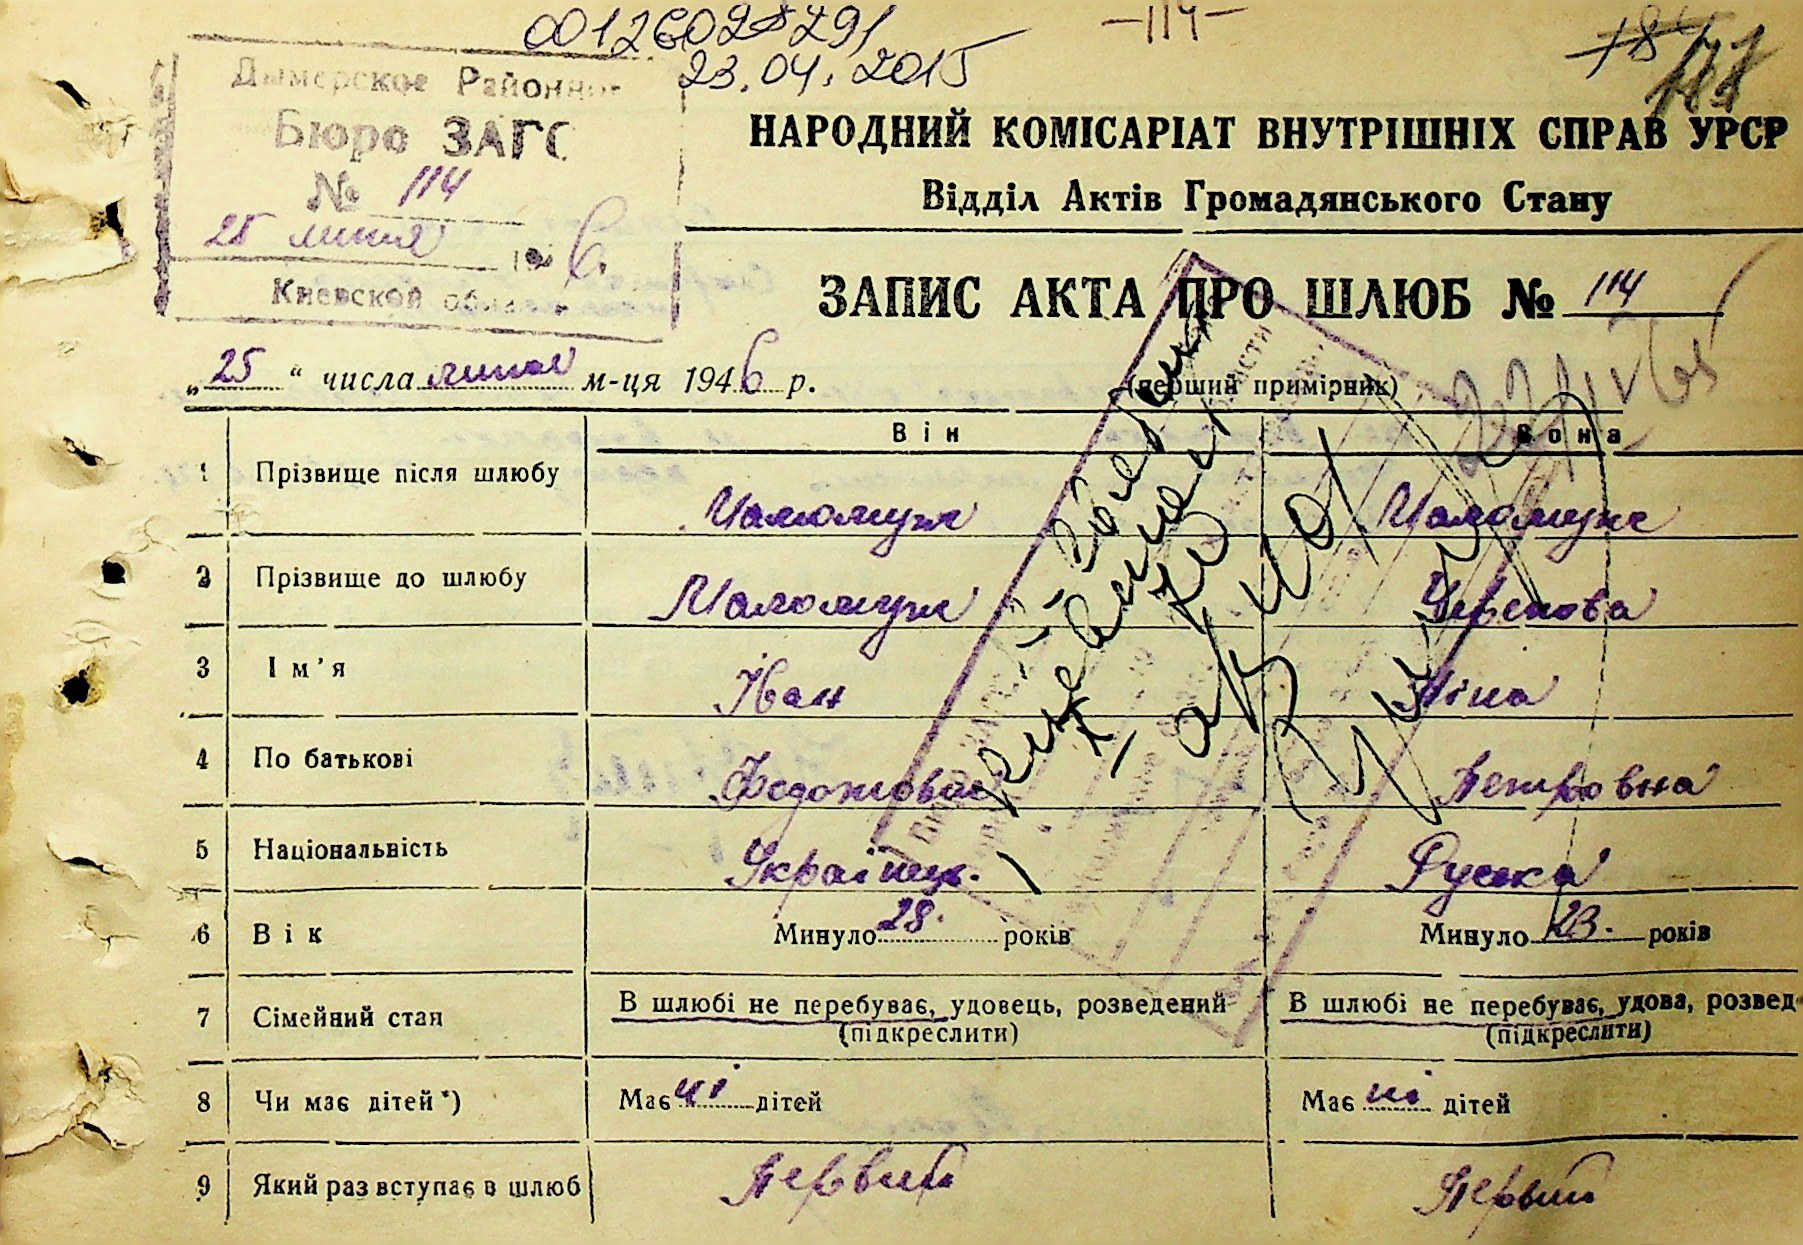 00126028291
23.04.2015
-114-
Дымерское Районное
Бюро ЗАГС
№ 114
25 липня 1946
Киевской области
НАРОДНИЙ КОМІСАРІАТ ВНУТРІШНІХ СПРАВ УРСР
Відділ Актів Громадянського Стану
ЗАПИС АКТА ПРО ШЛЮБ № 114
„25“ числа липня м-ця 1946 р.
(перший примірник)
Він Вона
1 Прізвище після шлюбу Маломуж Маломуж
2 Прізвище до шлюбу Маломуж
3 Ім'я Іван Ніна
4 По батькові Федотович Петровна
5 Національність Українець. Руська
6 Вік Минуло 28. років Минуло 23. років
7 Сімейний стан В шлюбі не перебуває, удовець, розведений В шлюбі не перебуває, удова, розвед
(підкреслити) (підкреслити)
8 Чи має дітей *) Має ні дітей Має ні дітей
9 Який раз вступає в шлюб Первий Первий